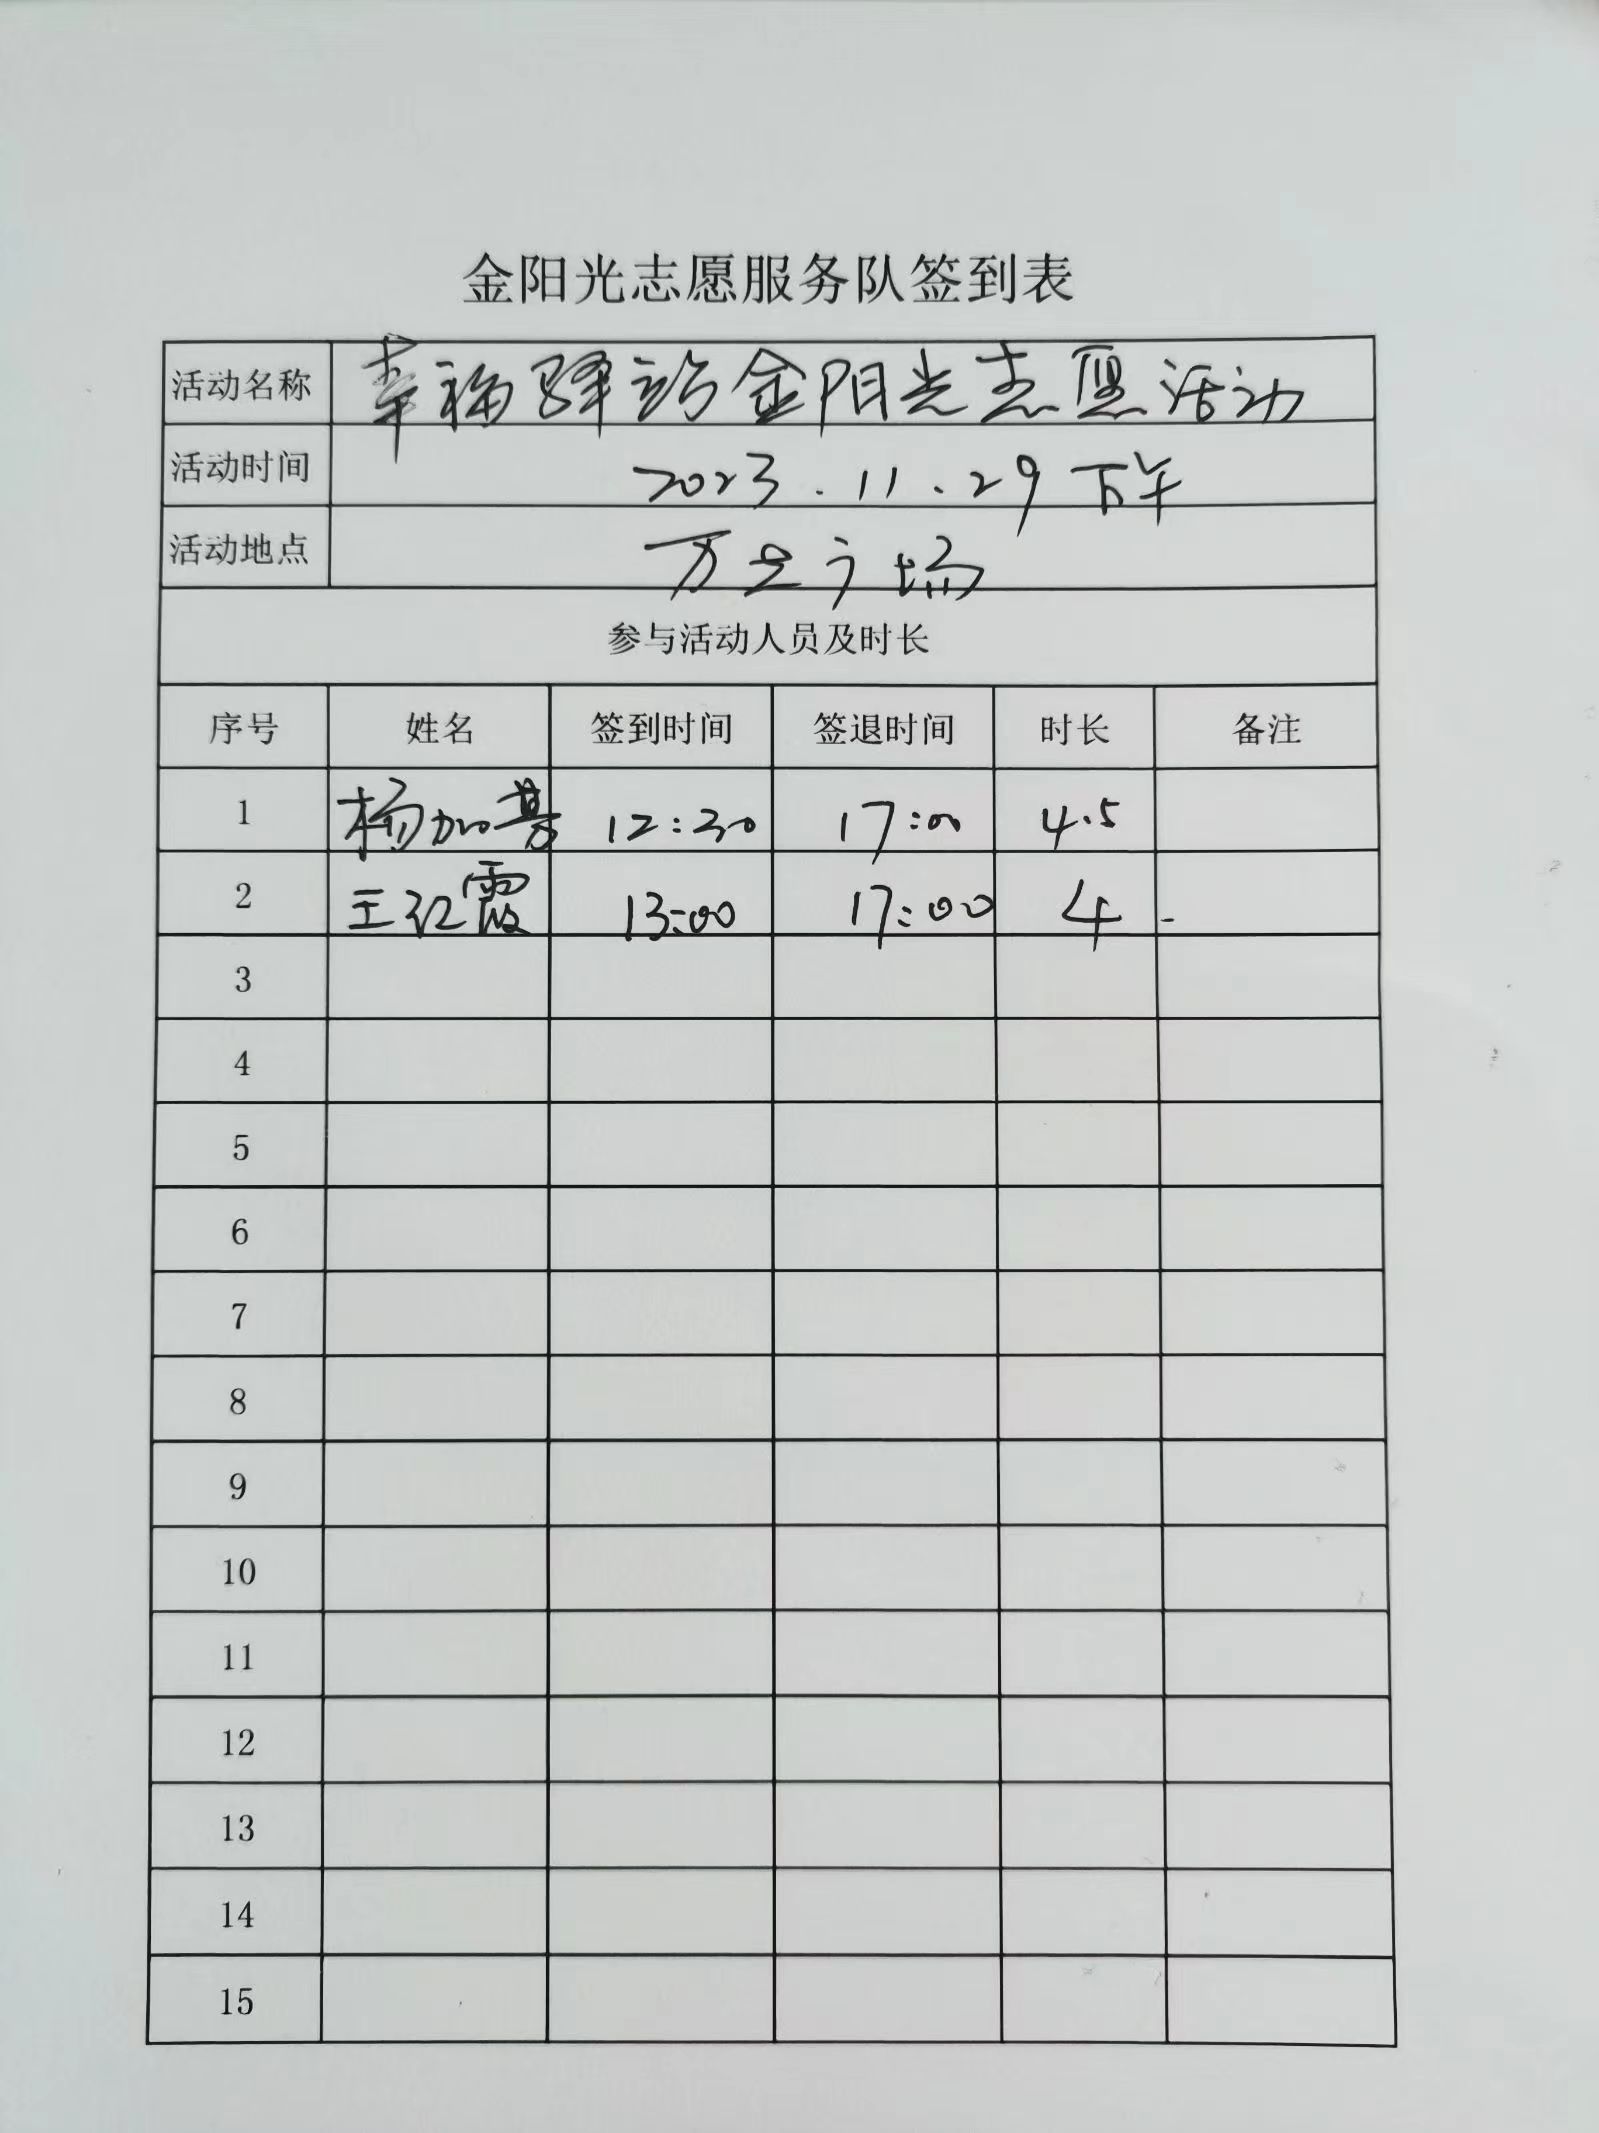 金阳光志愿服务队签到表
活动名称 幸福驿站金阳光志愿活动
活动时间 2023.11.29 下午
活动地点 万达广场
参与活动人员及时长
序号 姓名 签到时间 签退时间 时长 备注
1 杨加 12:30 17:00 4.5
2 王红霞 13:00 17:00 4
3
4
5
6
7
8
9
10
11
12
13
14
15